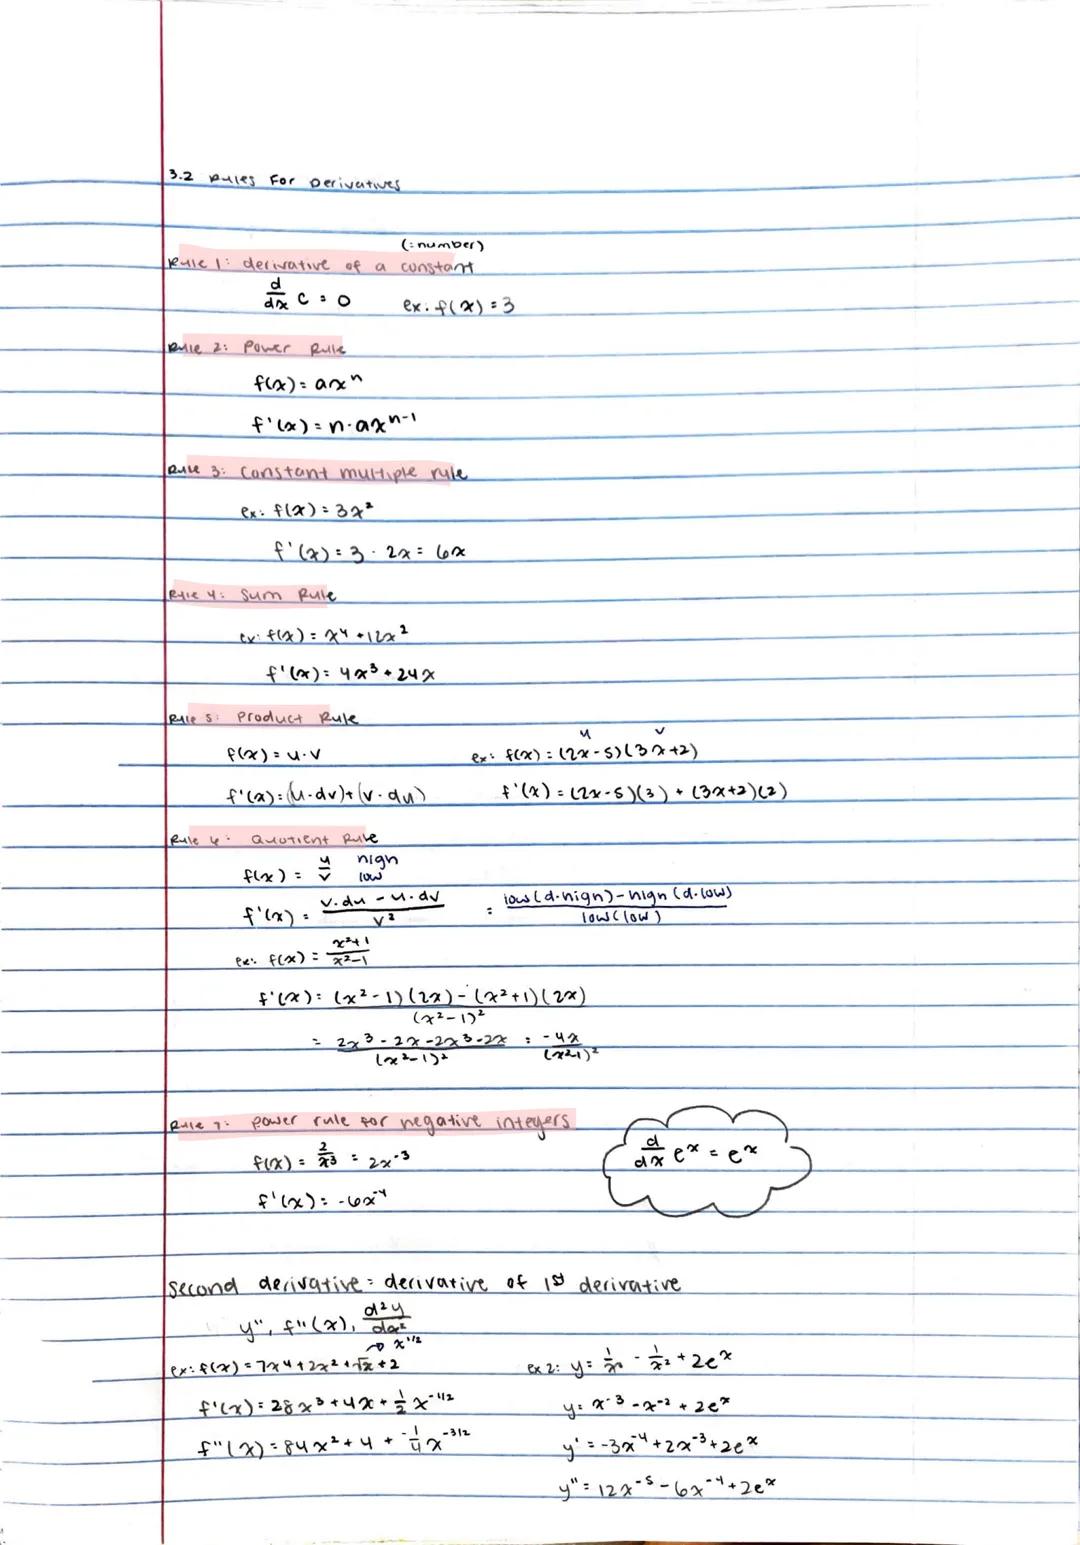 3.2 Rules For Derivatives
(=number)
Rule 1: derivative of a constant
d/dx c = 0 ex: f(x) = 3
Rule 2: Power Rule
f(x) = ax^n
f'(x) = n·ax^(n-1)
Rule 3: Constant multiple rule
ex: f(x) = 3x²
f'(x) = 3 · 2x = 6x
Rule 4: Sum Rule
ex: f(x) = x⁴ + 12x²
f'(x) = 4x³ + 24x
Rule 5: Product Rule
u v
f(x) = u·v ex: f(x) = (2x-5)(3x+2)
f'(x) = (u·dv)+(v·du) f'(x) = (2x-5)(3) + (3x+2)(2)
Rule 6: Quotient Rule
f(x) = u/v high/low
f'(x) = (v·du - u·dv)/v² = (low(d·high)-high(d·low))/(low(low))
ex: f(x) = (x²+1)/(x²-1)
f'(x) = ((x²-1)(2x)-(x²+1)(2x))/(x²-1)²
= (2x³-2x-2x³-2x)/(x²-1)² = -4x/(x²-1)²
Rule 7: power rule for negative integers
f(x) = 2/x³ = 2x⁻³ d/dx e^x = e^x
f'(x) = -6x⁻⁴
Second derivative = derivative of 1st derivative
y", f"(x), d²y/dx²
→ x^(1/2)
ex: f(x) = 7x⁴+2x²+√x+2 ex 2: - 1/x² + 2e^x
f'(x) = 28x³+4x+½x^(-1/2) y = x⁻³ - x⁻² + 2e^x
f"(x) = 84x²+4+ -¼x^(-3/2) y' = -3x⁻⁴+2x⁻³+2e^x
y" = 12x⁻⁵-6x⁻⁴+2e^x